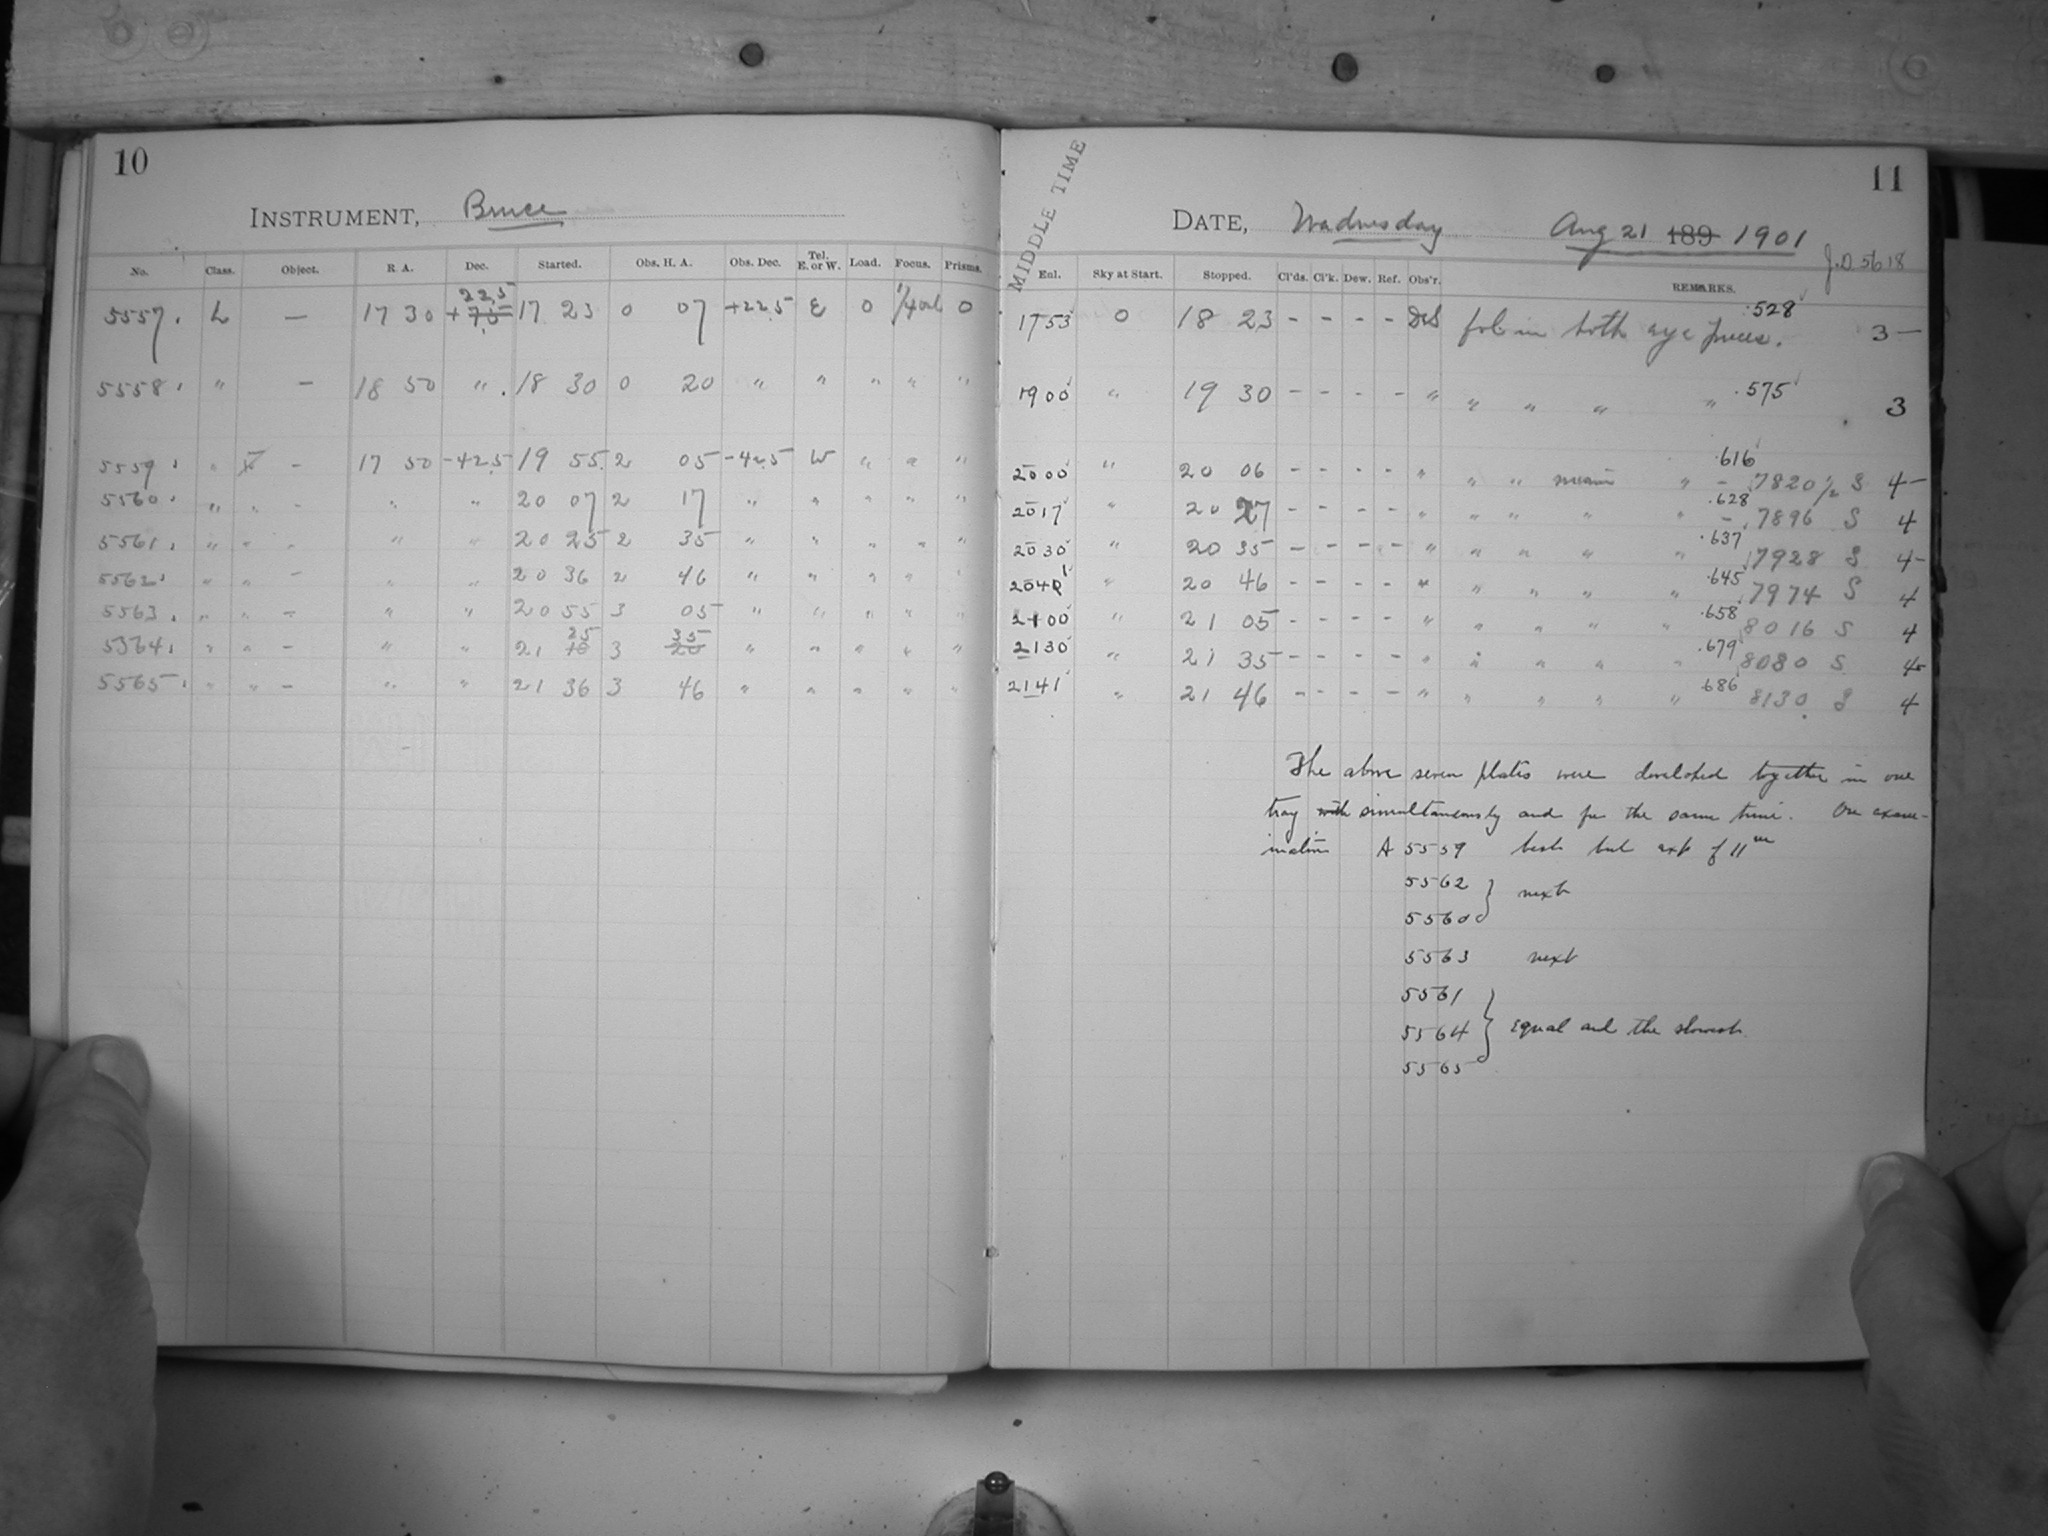 10
INSTRUMENT, Bruce
No. Class. Object. R A. Dec. Started. Obs. H. A. Obs. Dec. Tel. E. or W. Load. Focus. Prisms.
5557. L — 17 30 +22.5 17 23 0 07 +22.5 E 0 0
5558. " — 18 50 " 18 30 0 20 " " " " "
5559. " – 17 50 -42.5 19 55 2 05 -42.5 W " " "
5560. " " – " " 20 07 2 17 " " " " "
5561. " " – " " 20 25 2 35 " " " " "
5562. " " – " " 20 36 2 46 " " " "
5563. " " – " " 20 55 3 05 " " " " "
5564. " " – " " 21 25 3 35 " " " " "
5565. " " – " " 21 36 3 46 " " " " "
MIDDLE TIME
11
DATE, Wednesday Aug 21 189 1901
J.D. 5618
Exl. Sky at Start. Stopped. Cl'ds. Cl'k. Dew. Ref. Obs'r. REMARKS.
1753 0 18 23 – – – – DeS fol in both eye pieces. .528 3 –
1900 " 19 30 – – – – " " " " " .575 3
2000 " 20 06 – – – – " " " " .616 – 7820½ S 4 –
2017 " 20 27 – – – – " " " " " .628 – 7896 S 4
2030 " 20 35 – – – – " " " " " .637 7928 S 4 –
2041 " 20 46 – – – – " " " " " .645 7974 S 4
2100 " 21 05 – – – – " " " " " .658 8016 S 4
2130 " 21 35 – – – – " " " " " .679 8080 S 4
2141 " 21 46 – – – – " " " " " .686 8130 S 4
The above seven plates were developed together in one
tray with simultaneously and for the same time. On exam-
ination A 5559 best but exp of 11m
5562 } next
5560
5563 next
5561
5564 } equal and the slowest.
5565